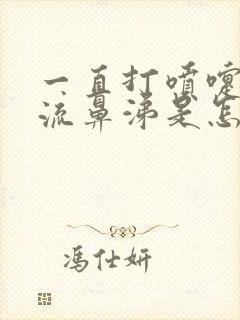 一直打喷嚏
流鼻涕是怎
冯仕妍